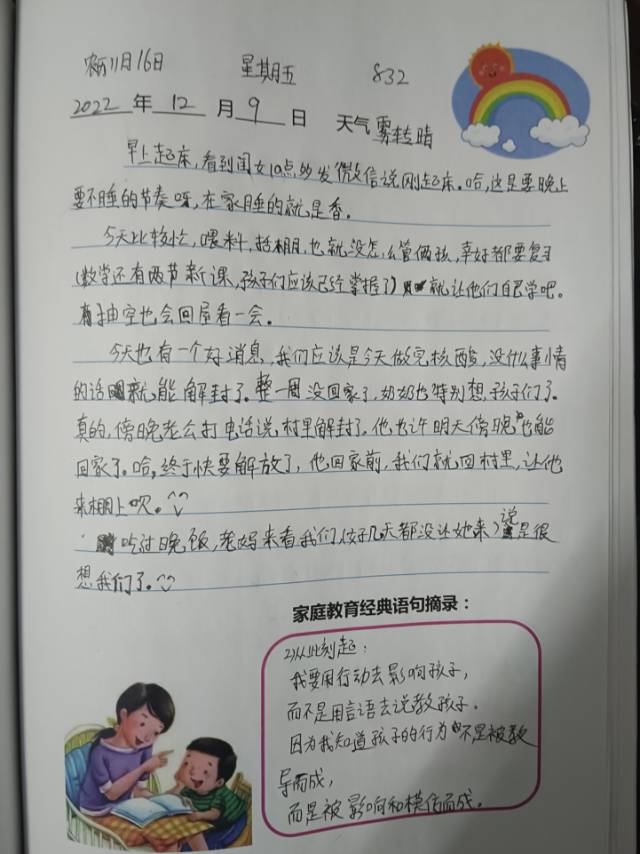 农历11月16日 星期五 832
2022 年 12 月 9 日 天气 雾转晴
早上起床,看到闺女10点钟发微信说刚起床。哈,这是要晚上
要不睡的节奏呀,在家睡的就是香。
今天比较忙,喂料,括棚,也就没怎么管俩孩,幸好都要复习
(数学还有两节新课,孩子们应该已经掌握了)就让他们自己学吧。
抽空也会回屋看一会。
今天也有一个好消息,我们应该是今天做完核酸,没什么事情
的话就能解封了。整一周没回家了,奶奶也特别想孩子们了。
真的,傍晚老公打电话说村里解封了,他也许明天傍晚也能
回家了。哈,终于快要解放了,他回家前,我们就回村里,让他
来棚上吹。
吃过晚饭,老妈来看我们(好几天都没让她来)说是很
想我们了。
家庭教育经典语句摘录:
2)从此刻起:
我要用行动去影响孩子,
而不是用言语去说教孩子.
因为我知道孩子的行为不是被教
导而成,
而是被影响和模仿而成。